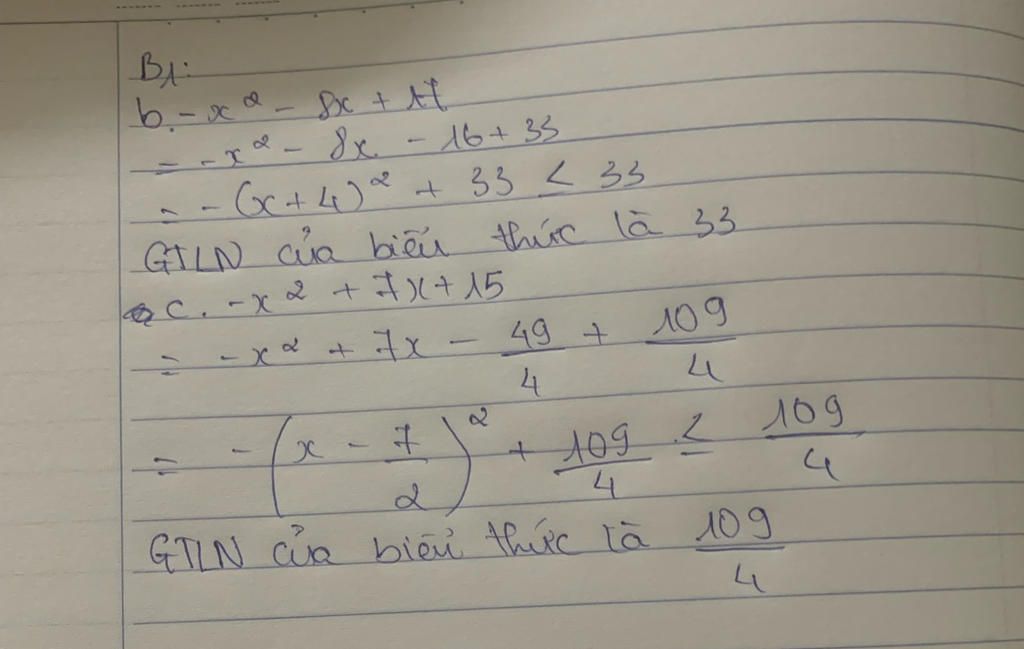 B1:
b. -x² - 8x + 17
= -x² - 8x - 16 + 33
= -(x+4)² + 33 ≤ 33
GTLN của biểu thức là 33
c. -x² + 7x + 15
= -x² + 7x - 49/4 + 109/4
= -(x - 7/2)² + 109/4 ≤ 109/4
GTLN của biểu thức là 109/4